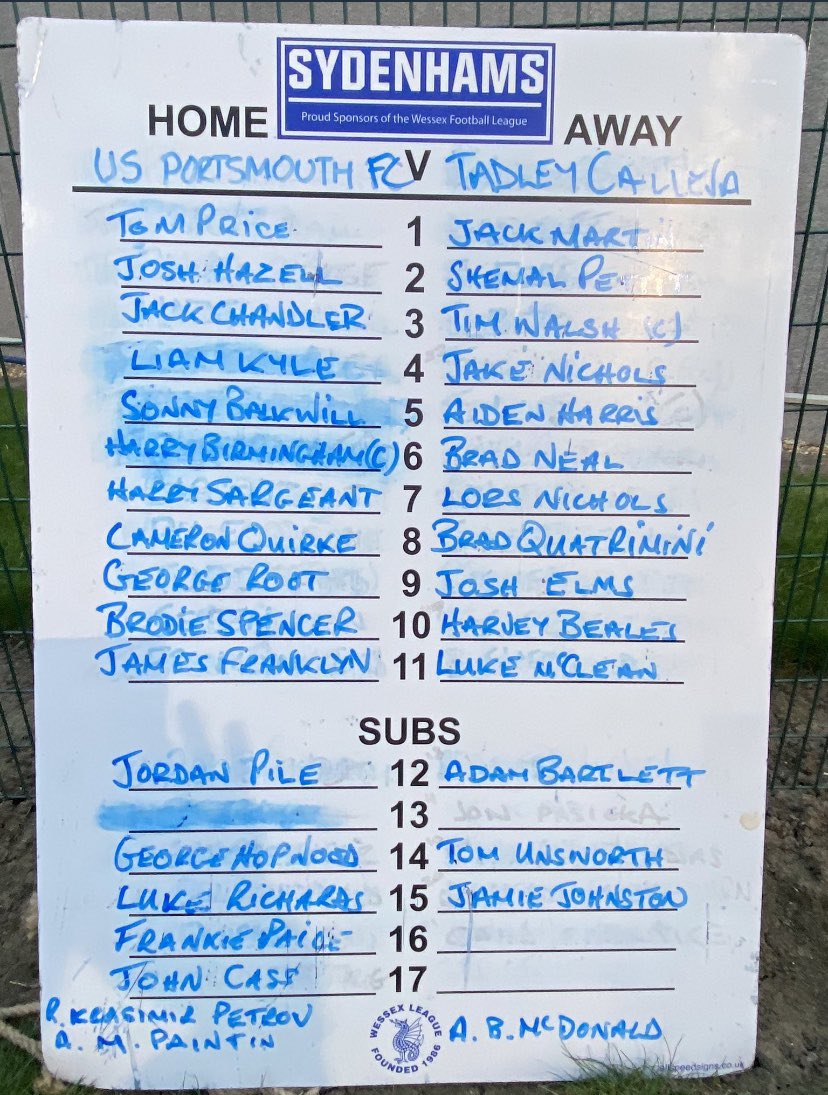 SYDENHAMS
Proud Sponsors of the Wessex Football League
HOME AWAY
US PORTSMOUTH FC V TADLEY CALLEVA
TOM PRICE 1 JACK MARTI
JOSH HAZELL 2 SKEMAL PE
JACK CHANDLER 3 TIM WALSH (C)
LIAM KYLE 4 JAKE NICHOLS
SONNY BALKWILL 5 AIDEN HARRIS
HARRY BIRMINGHAM (C) 6 BRAD NEAL
HARRY SARGEANT 7 LORS NICHOLS
CAMERON QUIRKE 8 BRAD QUATRIMINI
GEORGE ROOT 9 JOSH ELMS
BRODIE SPENCER 10 HARVEY BEALES
JAMES FRANKLYN 11 LUKE McCLEAN
SUBS
JORDAN PILE 12 ADAM BARTLETT
13
GEORGE HOPWOOD 14 TOM UNSWORTH
LUKE RICHARDS 15 JAMIE JOHNSTON
FRANKIE PAIGE 16
JOHN CASS 17
R. KRASIMIR PETROV
A. M. PAINTIN
WESSEX LEAGUE FOUNDED 1986
A. B. McDONALD